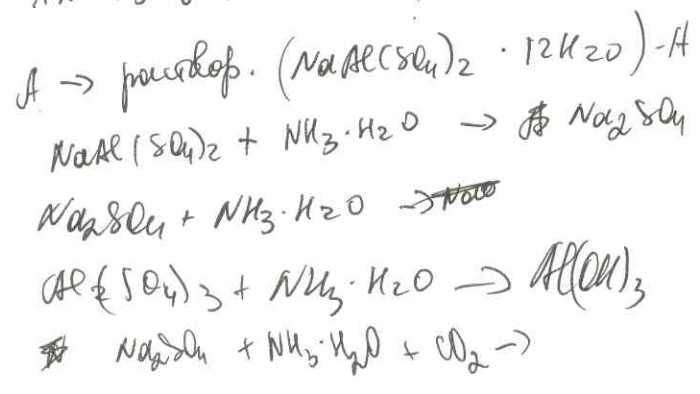 A → раствор. (NaAl(SO4)2 · 12H2O) - A
NaAl(SO4)2 + NH3·H2O → Na2SO4
Na2SO4 + NH3·H2O →
Al2(SO4)3 + NH3·H2O → Al(OH)3
Na2SO4 + NH3·H2O + CO2 →